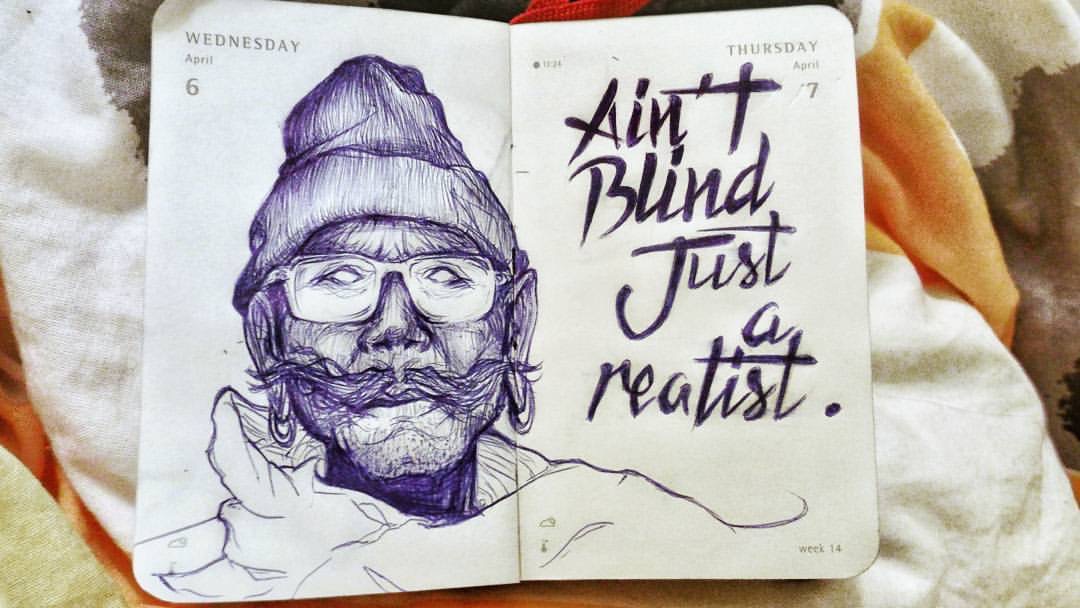 WEDNESDAY
April
6
THURSDAY
April
7
11:24
Ain't
Blind
Just
a
realist.
week 14